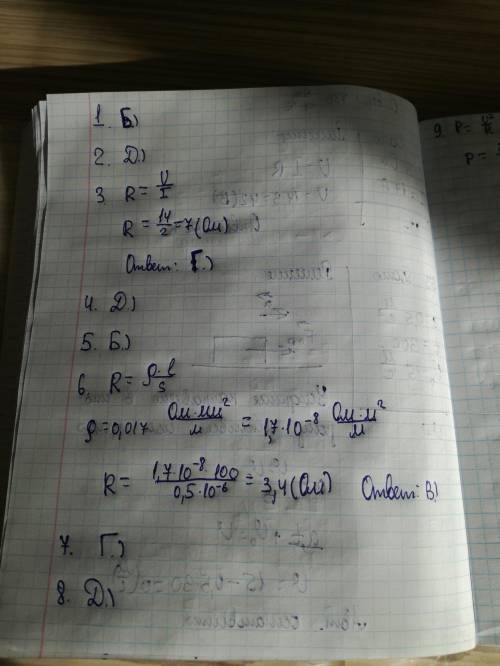 1. Б)
2. Д)
3. R = U/I
R = 14/2 = 7 (Ом)
Ответ: Г.)
4. Д)
5. Б.)
6. R = ρ·l/s
ρ = 0,017 Ом·мм²/м = 1,7·10⁻⁸ Ом·м²/м
R = 1,7·10⁻⁸·100/0,5·10⁻⁶ = 3,4 (Ом) Ответ: В.)
7. Г.)
8. Д.)
9. P = U²/R
P =